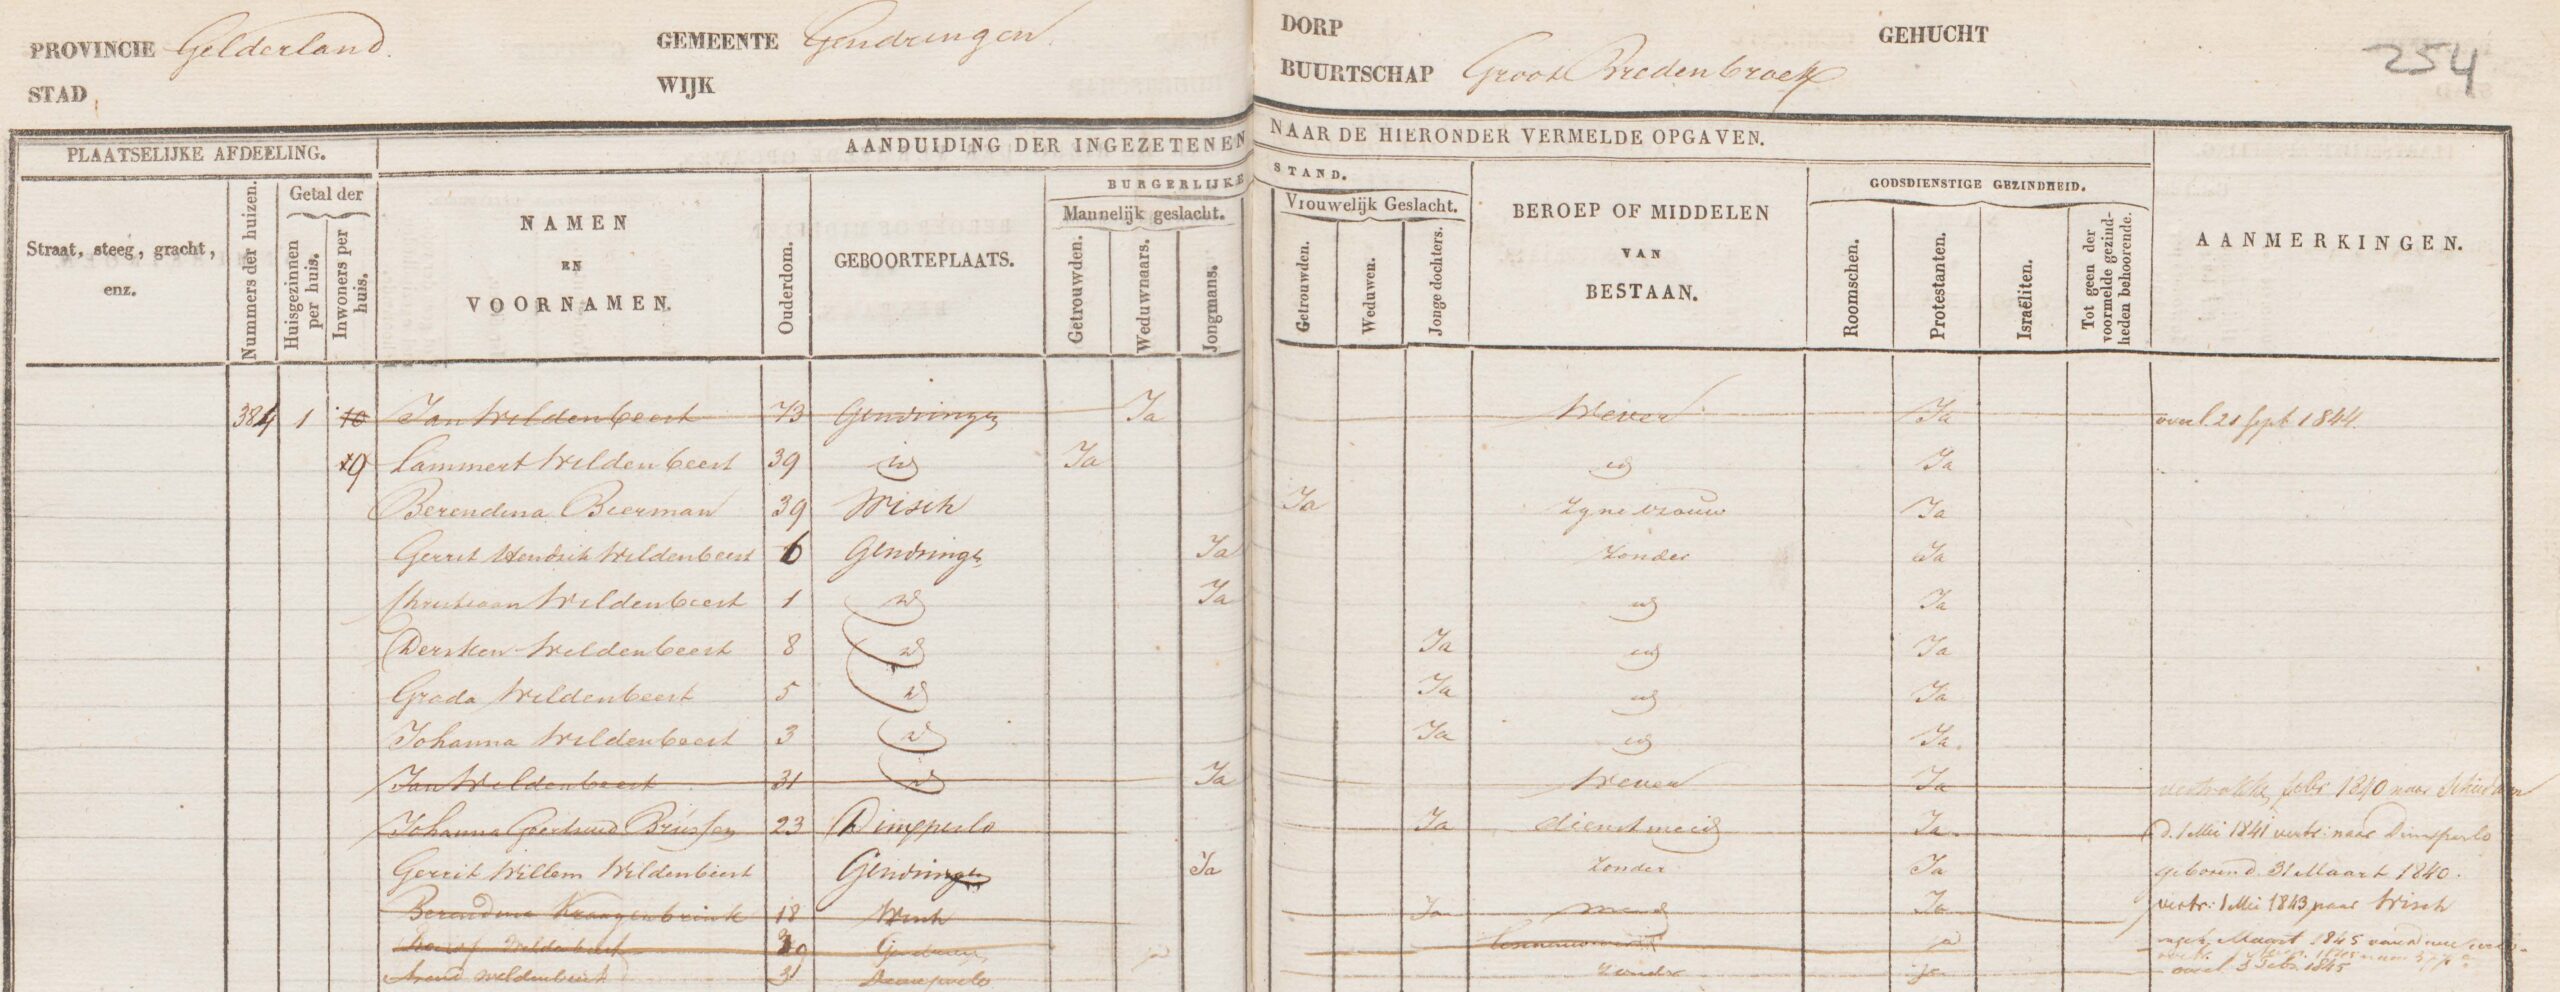 PROVINCIE Gelderland.
GEMEENTE Gendringen.
DORP
GEHUCHT
254
STAD
WIJK
BUURTSCHAP Groot Bredenbroek
PLAATSELIJKE AFDEELING.
AANDUIDING DER INGEZETENEN NAAR DE HIERONDER VERMELDE OPGAVEN.
Straat, steeg, gracht, enz.
Nummers der huizen.
Getal der
Huisgezinnen per huis.
Inwoners per huis.
NAMEN
EN
VOORNAMEN.
Ouderdom.
GEBOORTEPLAATS.
BURGERLIJKE STAND.
Mannelijk geslacht.
Getrouwden.
Weduwnaars.
Jongmans.
Vrouwelijk Geslacht.
Getrouwden.
Weduwen.
Jonge dochters.
BEROEP OF MIDDELEN
VAN
BESTAAN.
GODSDIENSTIGE GEZINDHEID.
Roomschen.
Protestanten.
Israëliten.
Tot geen der voormelde gezindheden behoorende.
AANMERKINGEN.
384 1 10 Jan Wildenbeest 73 Gendringen Ja Wever Ja overl. 21 Sept 1844.
9 Lammert Wildenbeest 39 id Ja id Ja
Berendina Bierman 39 Wisch Ja Zyne vrouw Ja
Gerrit Hendrik Wildenbeest 6 Gendringen Ja Zonder Ja
Christiaan Wildenbeest 1 id Ja id Ja
Dersken Wildenbeest 8 id Ja id Ja
Grada Wildenbeest 5 id Ja id Ja
Johanna Wildenbeest 3 id Ja id Ja.
Jan Wildenbeest 31 id Ja Wever Ja febr 1840 naar
Johanna Geertruid 23 Dinxperlo Ja dienstmeid Ja d. 1 Mei 1841 vertr: naar Dinxperlo
Gerrit Willem Wildenbeest Gendringen Ja Zonder Ja geboren d. 31 Maart 1840.
Berendina Kraayenbrink 18 Wisch Ja meid Ja vertr: 1 Mei 1843 naar Wisch
Wildenbeest ja Maart 1845
Arend Wildenbeest 31 Dinxperlo zonder ja overl. 3 Febr. 1845